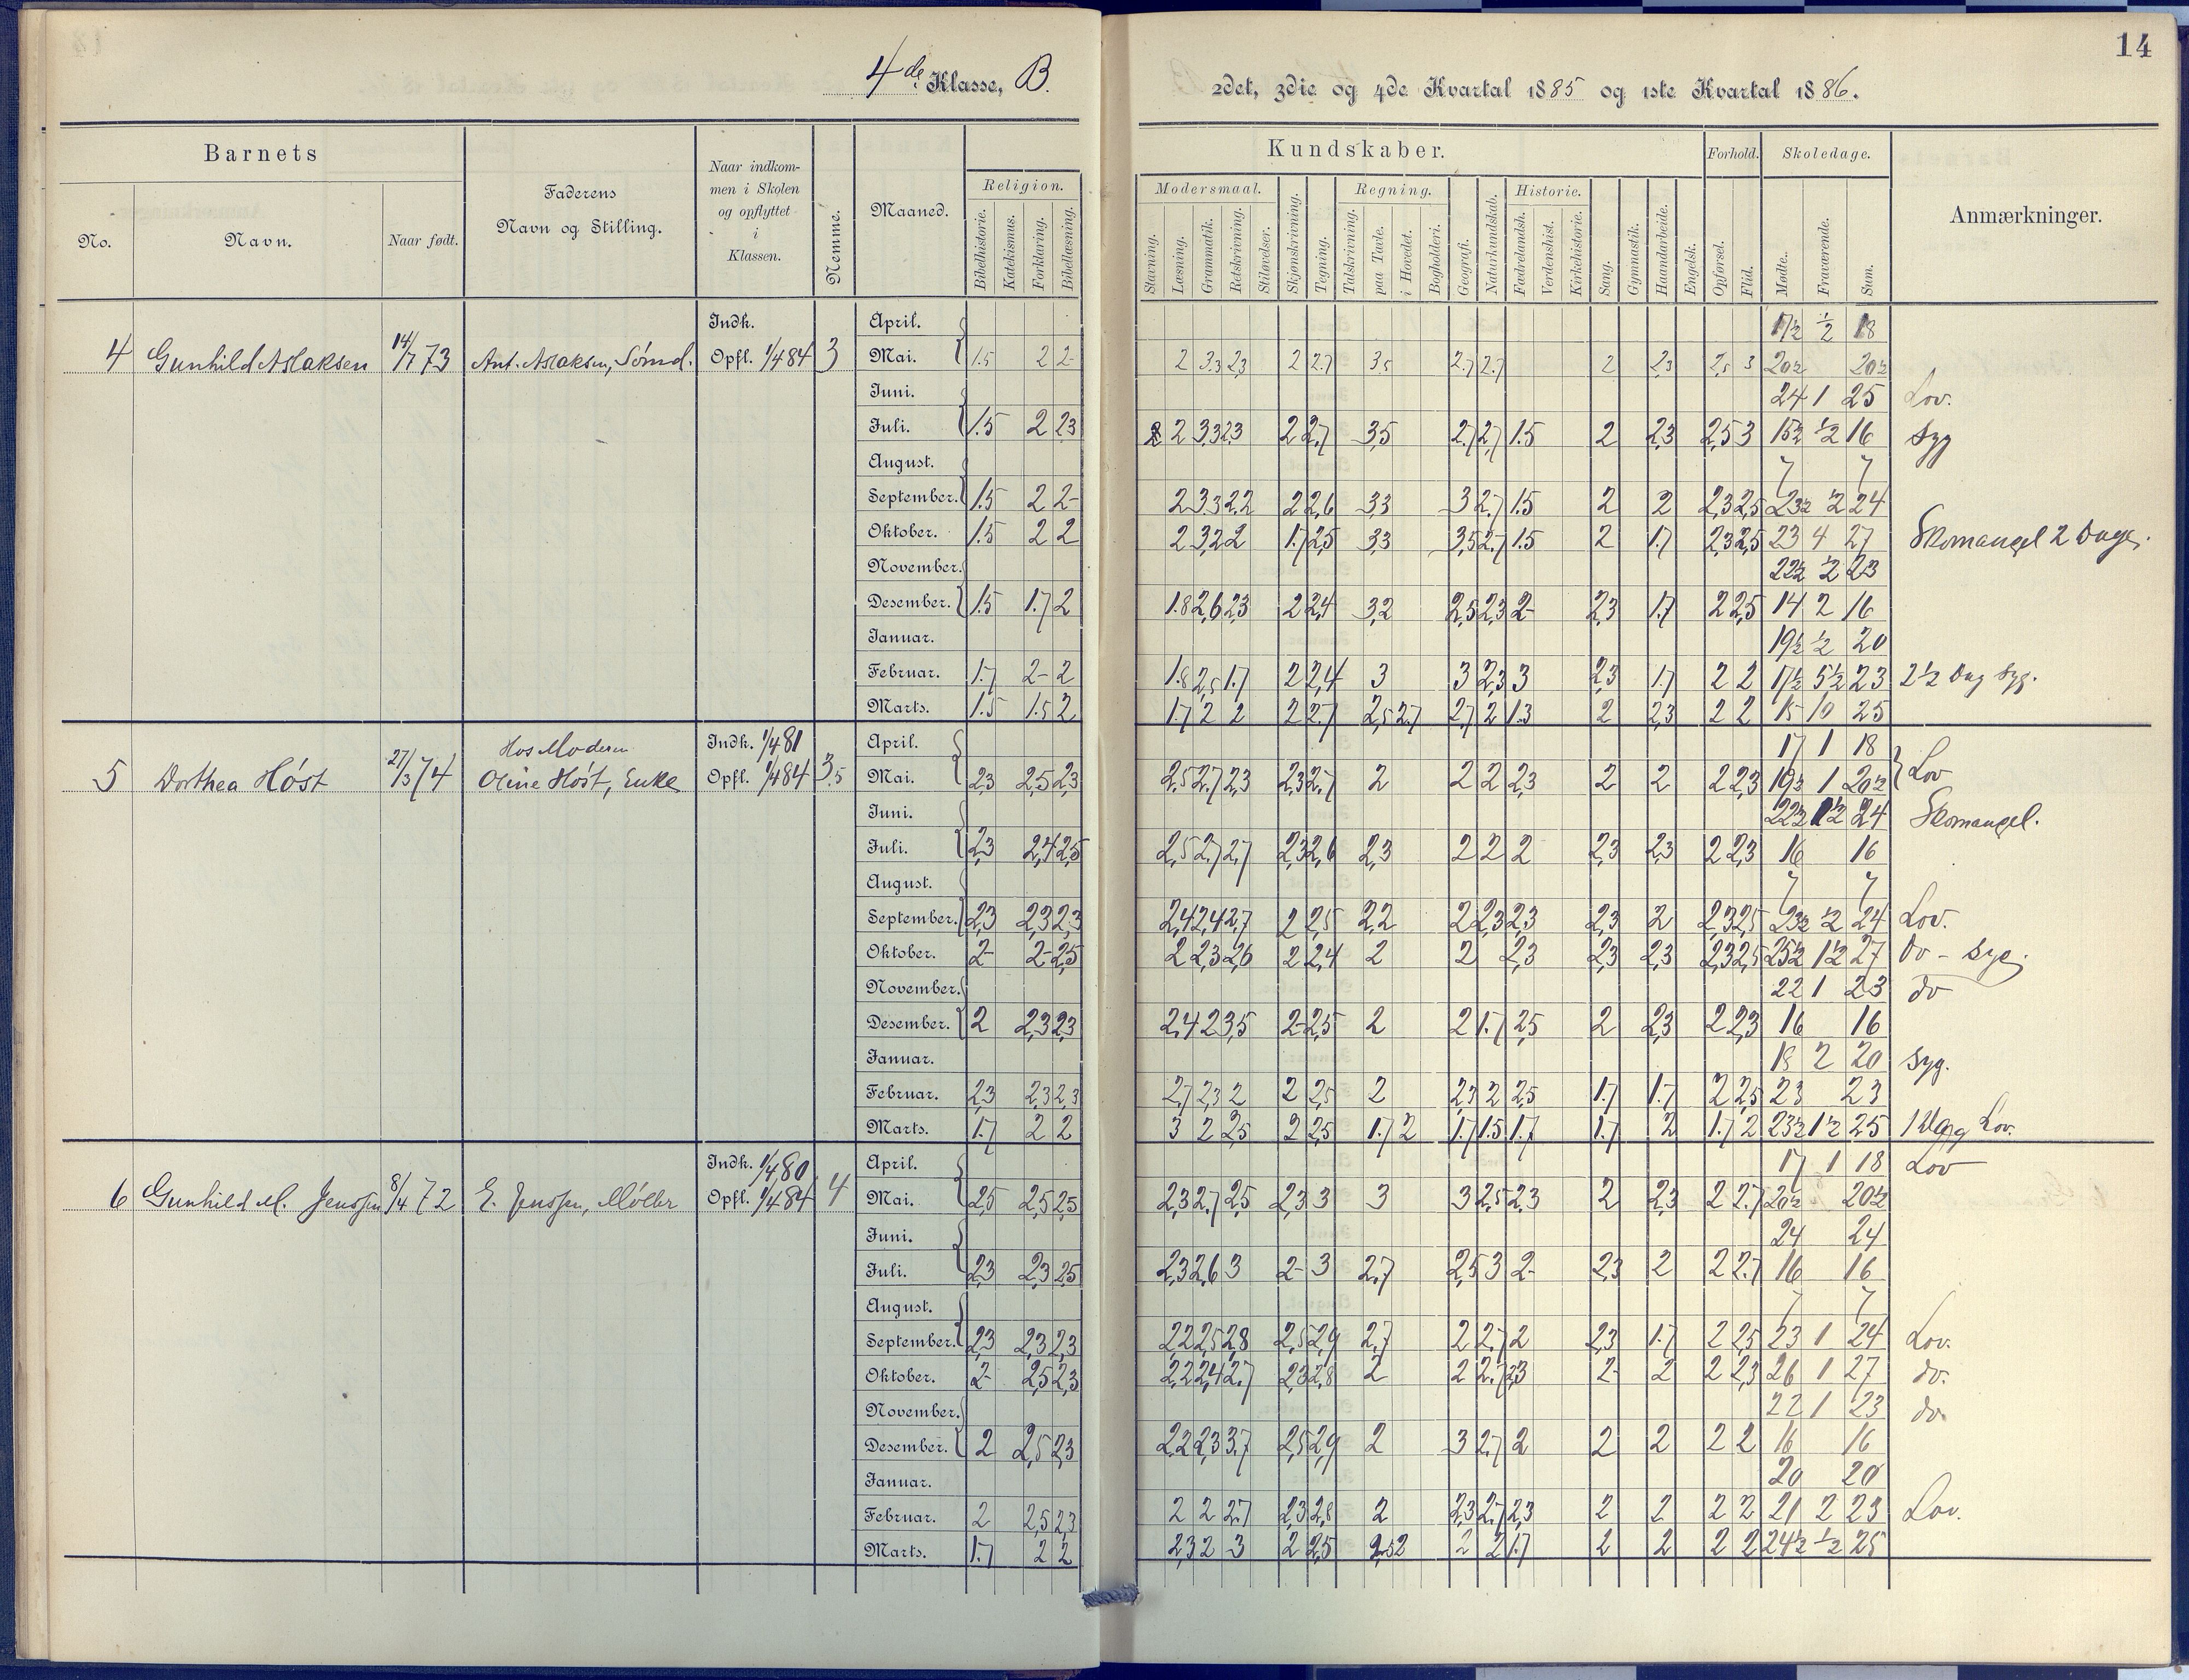 14
4de Klasse, B.
2det, 3die og 4de Kvartal 1885 og 1ste Kvartal 1886.
Barnets
No.
Navn.
Naar født.
Faderens
Navn og Stilling.
Naar indkom-
men i Skolen
og opflyttet
i
Klassen.
Nemme.
Maaned.
Religion.
Bibelhistorie.
Katekismus.
Forklaring.
Bibellæsning.
Kundskaber.
Modersmaal.
Stavning.
Læsning.
Grammatik.
Retskrivning.
Stiløvelser.
Skjønskrivning.
Tegning.
Regning.
Talskrivning.
paa Tavle.
i Hovedet.
Bogholderi.
Geografi.
Naturkundskab.
Historie.
Fædrelandsh.
Verdenshist.
Kirkehistorie.
Sang.
Gymnastik.
Haandarbeide.
Engelsk.
Forhold.
Opførsel.
Flid.
Skoledage.
Mødte.
Fraværende.
Sum.
Anmærkninger.
4 Gunhild Aslaksen 14/7 73 Ant. Aslaksen, Sømd. Indk. Opfl. 1/4 84 3
April. 17½ ½ 18
Mai. 1.5 2 2- 2 3.3 2,3 2 2.7 3,5 2.7 2.7 2 2,3 2,5 3 20½ 20½
Juni. 24 1 25 Lov.
Juli. 1.5 2 2,3 2 3,3 2,3 2 2,7 3,5 2.7 2,7 1.5 2 2,3 2,5 3 15½ ½ 16 Syg
August. 7 7
September. 1.5 2 2- 2 3.3 2.2 2 2,6 3,3 3 2.7 1.5 2 2 2,3 2,5 23½ ½ 24
Oktober. 1.5 2 2 2 3,2 2 1.7 2,5 3,3 3,5 2.7 1.5 2 1.7 2,3 2,5 23 4 27 Skomangel 2 Dage.
November. 22½ ½ 23
Desember. 1.5 1.7 2 1.8 2,6 2,3 2 2,4 3,2 2,5 2,3 2- 2,3 1.7 2 2,5 14 2 16
Januar. 19½ ½ 20
Februar. 1.7 2- 2 1.8 2,5 1.7 2 2,4 3 3 2,3 3 2,3 1.7 2 2 17½ 5½ 23 2½ Dag Syg.
Marts. 1.5 1.5 2 1.7 2 2 2 2.7 2,5 2.7 2,7 2 1.3 2 2,3 2 2 15 10 25
5 Dorthea Høst 27/3 74 Hos Moderen Oline Høst, Enke Indk. 1/4 81 Opfl. 1/4 84 3.5
April. 17 1 18
Mai. 2,3 2,5 2,3 2,5 2.7 2,3 2,3 2.7 2 2 2 2,3 2 2 2 2,3 19½ 1 20½ Lov
Juni. 22½ 1½ 24 Skomangel.
Juli. 2,3 2,4 2,5 2,5 2.7 2,7 2,3 2,6 2,3 2 2 2 2,3 2,3 2 2,3 16 16
August. 7 7
September. 2,3 2,3 2,3 2,4 2,4 2,7 2 2,5 2,2 2 2,3 2,3 2,3 2 2,3 2,5 23½ ½ 24 Lov.
Oktober. 2- 2- 2,5 2 2,3 2,6 2 2,4 2 2 2,3 2,3 2,3 2,3 2,5 25½ 1½ 27 Do - Syg.
November. 22 1 23 do
Desember. 2 2,3 2,3 2,4 2 3,5 2- 2,5 2 2 1.7 2,5 2 2,3 2 2,3 16 16
Januar. 18 2 20 Syg.
Februar. 2,3 2,3 2,3 2,7 2,3 2 2 2,5 2 2,3 2 2,5 1.7 1.7 2 2,5 23 23
Marts. 1.7 2 2 3 2 2,5 2 2,5 1.7 2 1.7 1.5 1.7 1.7 2 1.7 2 23½ 1½ 25 1 Dag Lov.
6 Gunhild M. Jenssen 8/4 72 E. Jenssen, Møller Indk. 1/4 80 Opfl. 1/4 84 4
April. 17 1 18 Lov
Mai. 2,5 2,5 2,5 2,3 2.7 2,5 2,3 3 3 3 2,5 2,3 2 2,3 2 2.7 20½ 20½
Juni. 24 24
Juli. 2,3 2,3 2,5 2,3 2,6 3 2- 3 2,7 2,5 3 2- 2,3 2 2 2.7 16 16
August. 7 7
September. 2,3 2,3 2,3 2,2 2,5 2,8 2,5 2,9 2,7 2 2.7 2 2,3 1.7 2 2,5 23 1 24 Lov.
Oktober. 2- 2,5 2,3 2,2 2,4 2.7 2,3 2,8 2 2 2.7 2,3 2- 2 2 2,3 26 1 27 do.
November. 22 1 23 do
Desember. 2 2,5 2,3 2,2 2,3 3,7 2,5 2,9 2 3 2.7 2 2 2 2 2 16 16
Januar. 20 20
Februar. 2 2,5 2,3 2 2 2.7 2,3 2,8 2 2,3 2.7 2,3 2 2 2 2 21 2 23 Lov.
Marts. 1.7 2 2 2,3 2 3 2 2,5 2 2 2 1.7 2 2 2 2 24½ ½ 25